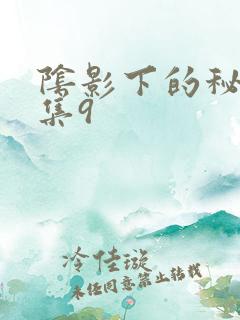 陰影下的秘
集9
冷佳璇
未经同意禁止转载